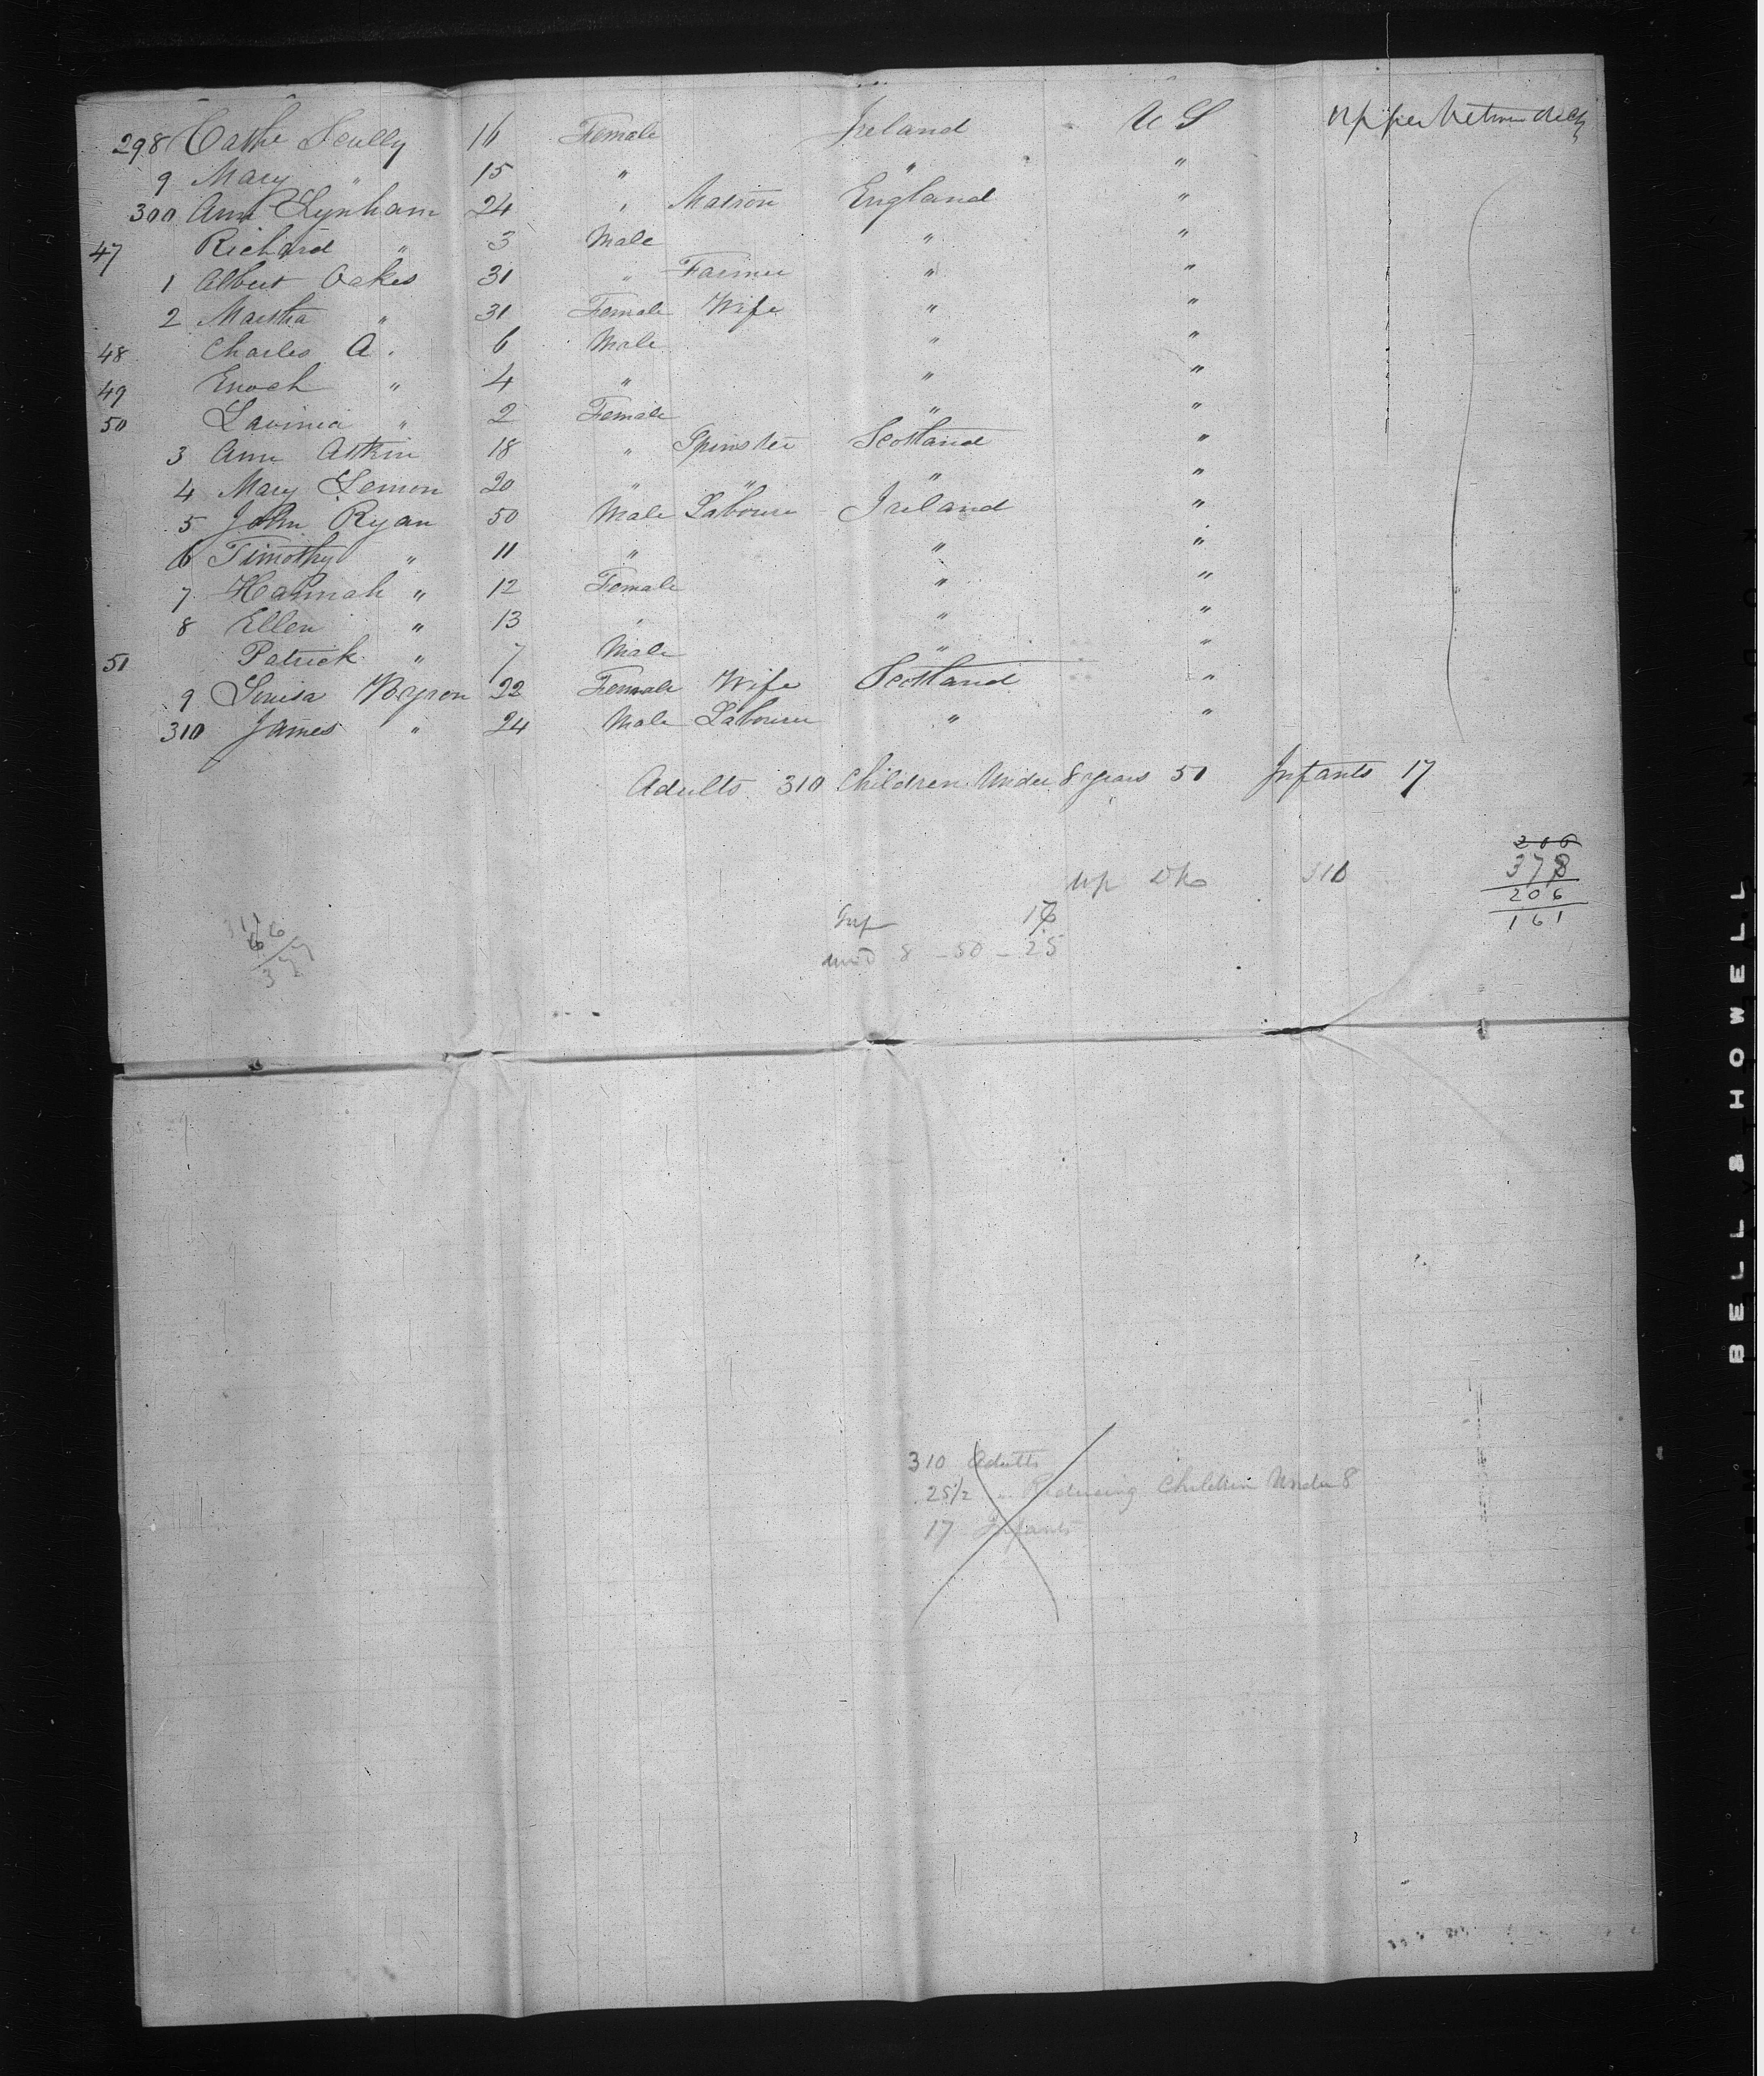 298 Cathe Scully 16 Female Ireland U S Upper between decks
9 Mary " 15 " " "
300 Ann Lynham 24 " Matron England "
47 Richard " 3 Male " "
1 Albert Oakes 31 " Farmer " "
2 Martha " 31 Female Wife " "
48 Charles A. 6 Male " "
49 Enoch " 4 " " "
50 Lavinia " 2 Female " "
3 Ann Atkin 18 " Spinster Scotland "
4 Mary Lemon 20 " " " "
5 John Ryan 50 Male Labourer Ireland "
6 Timothy " 11 " " "
7 Hannah " 12 Female " "
8 Ellen " 13 " " "
51 Patrick " 7 Male " "
9 Louisa Byron 22 Female Wife Scotland "
310 James " 24 Male Labourer " "
Adults 310 Children Under 8 years 51 Infants 17
206
378
206
161
Up Dks 310
Inf 17
und 8 - 50 - 25
310 Adults
25 1/2 " Reducing Children Under 8
17 Infants
BELL & HOWELL